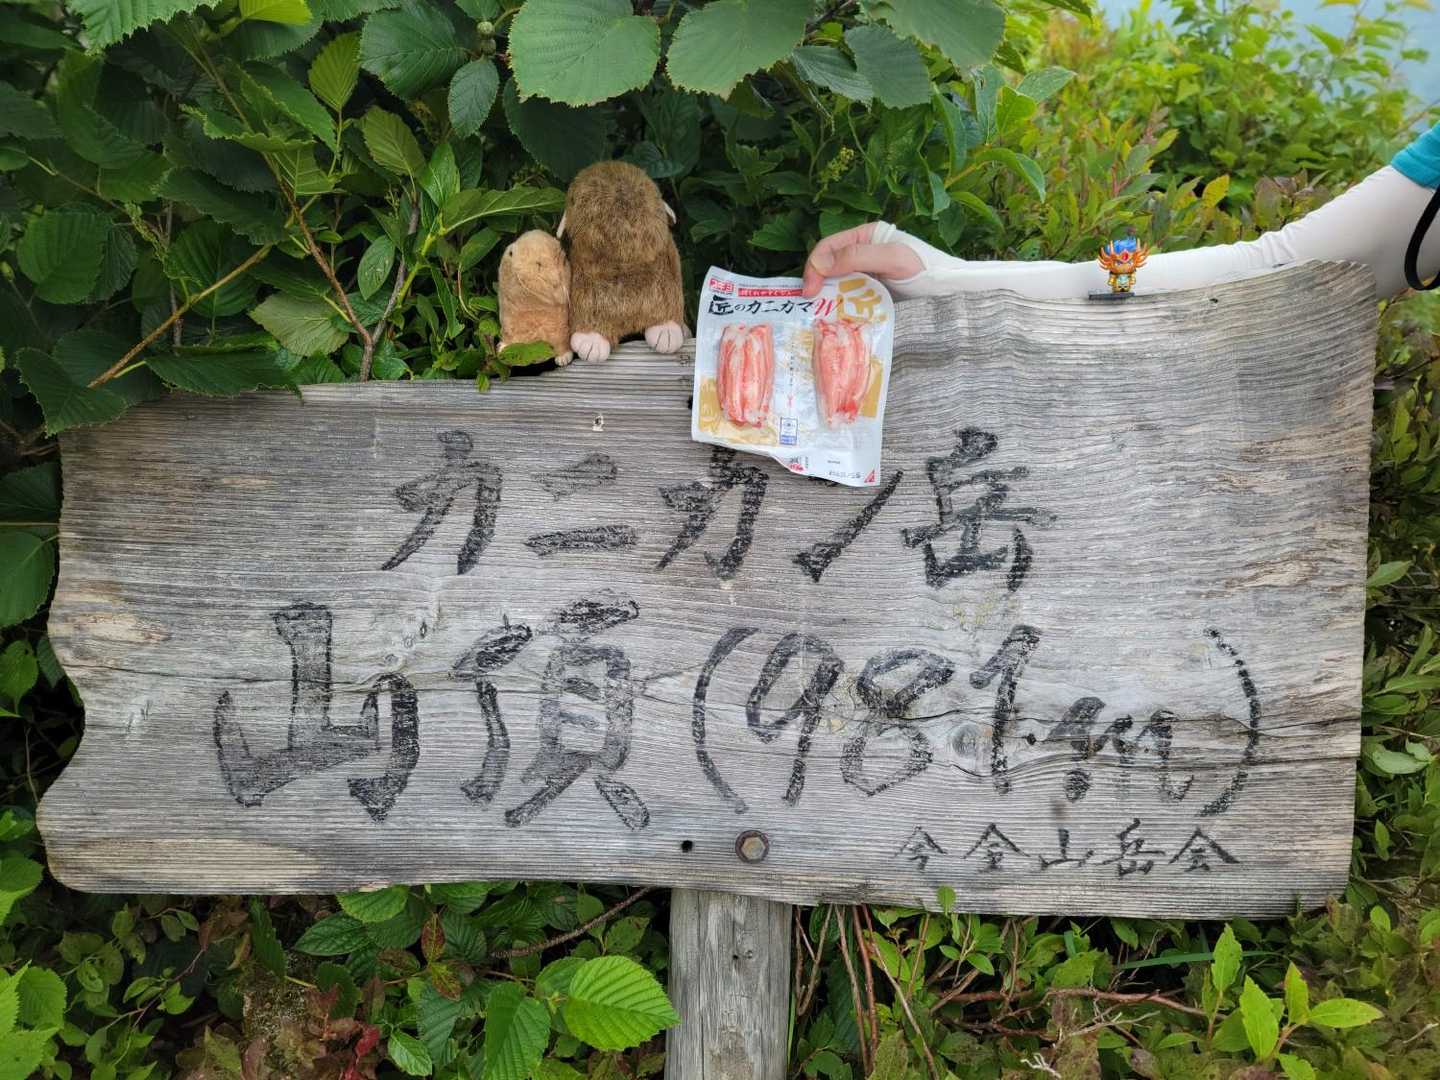 スギヨ
匠のカニカマW 匠
カニカン岳
山頂(981m)
今金山岳会